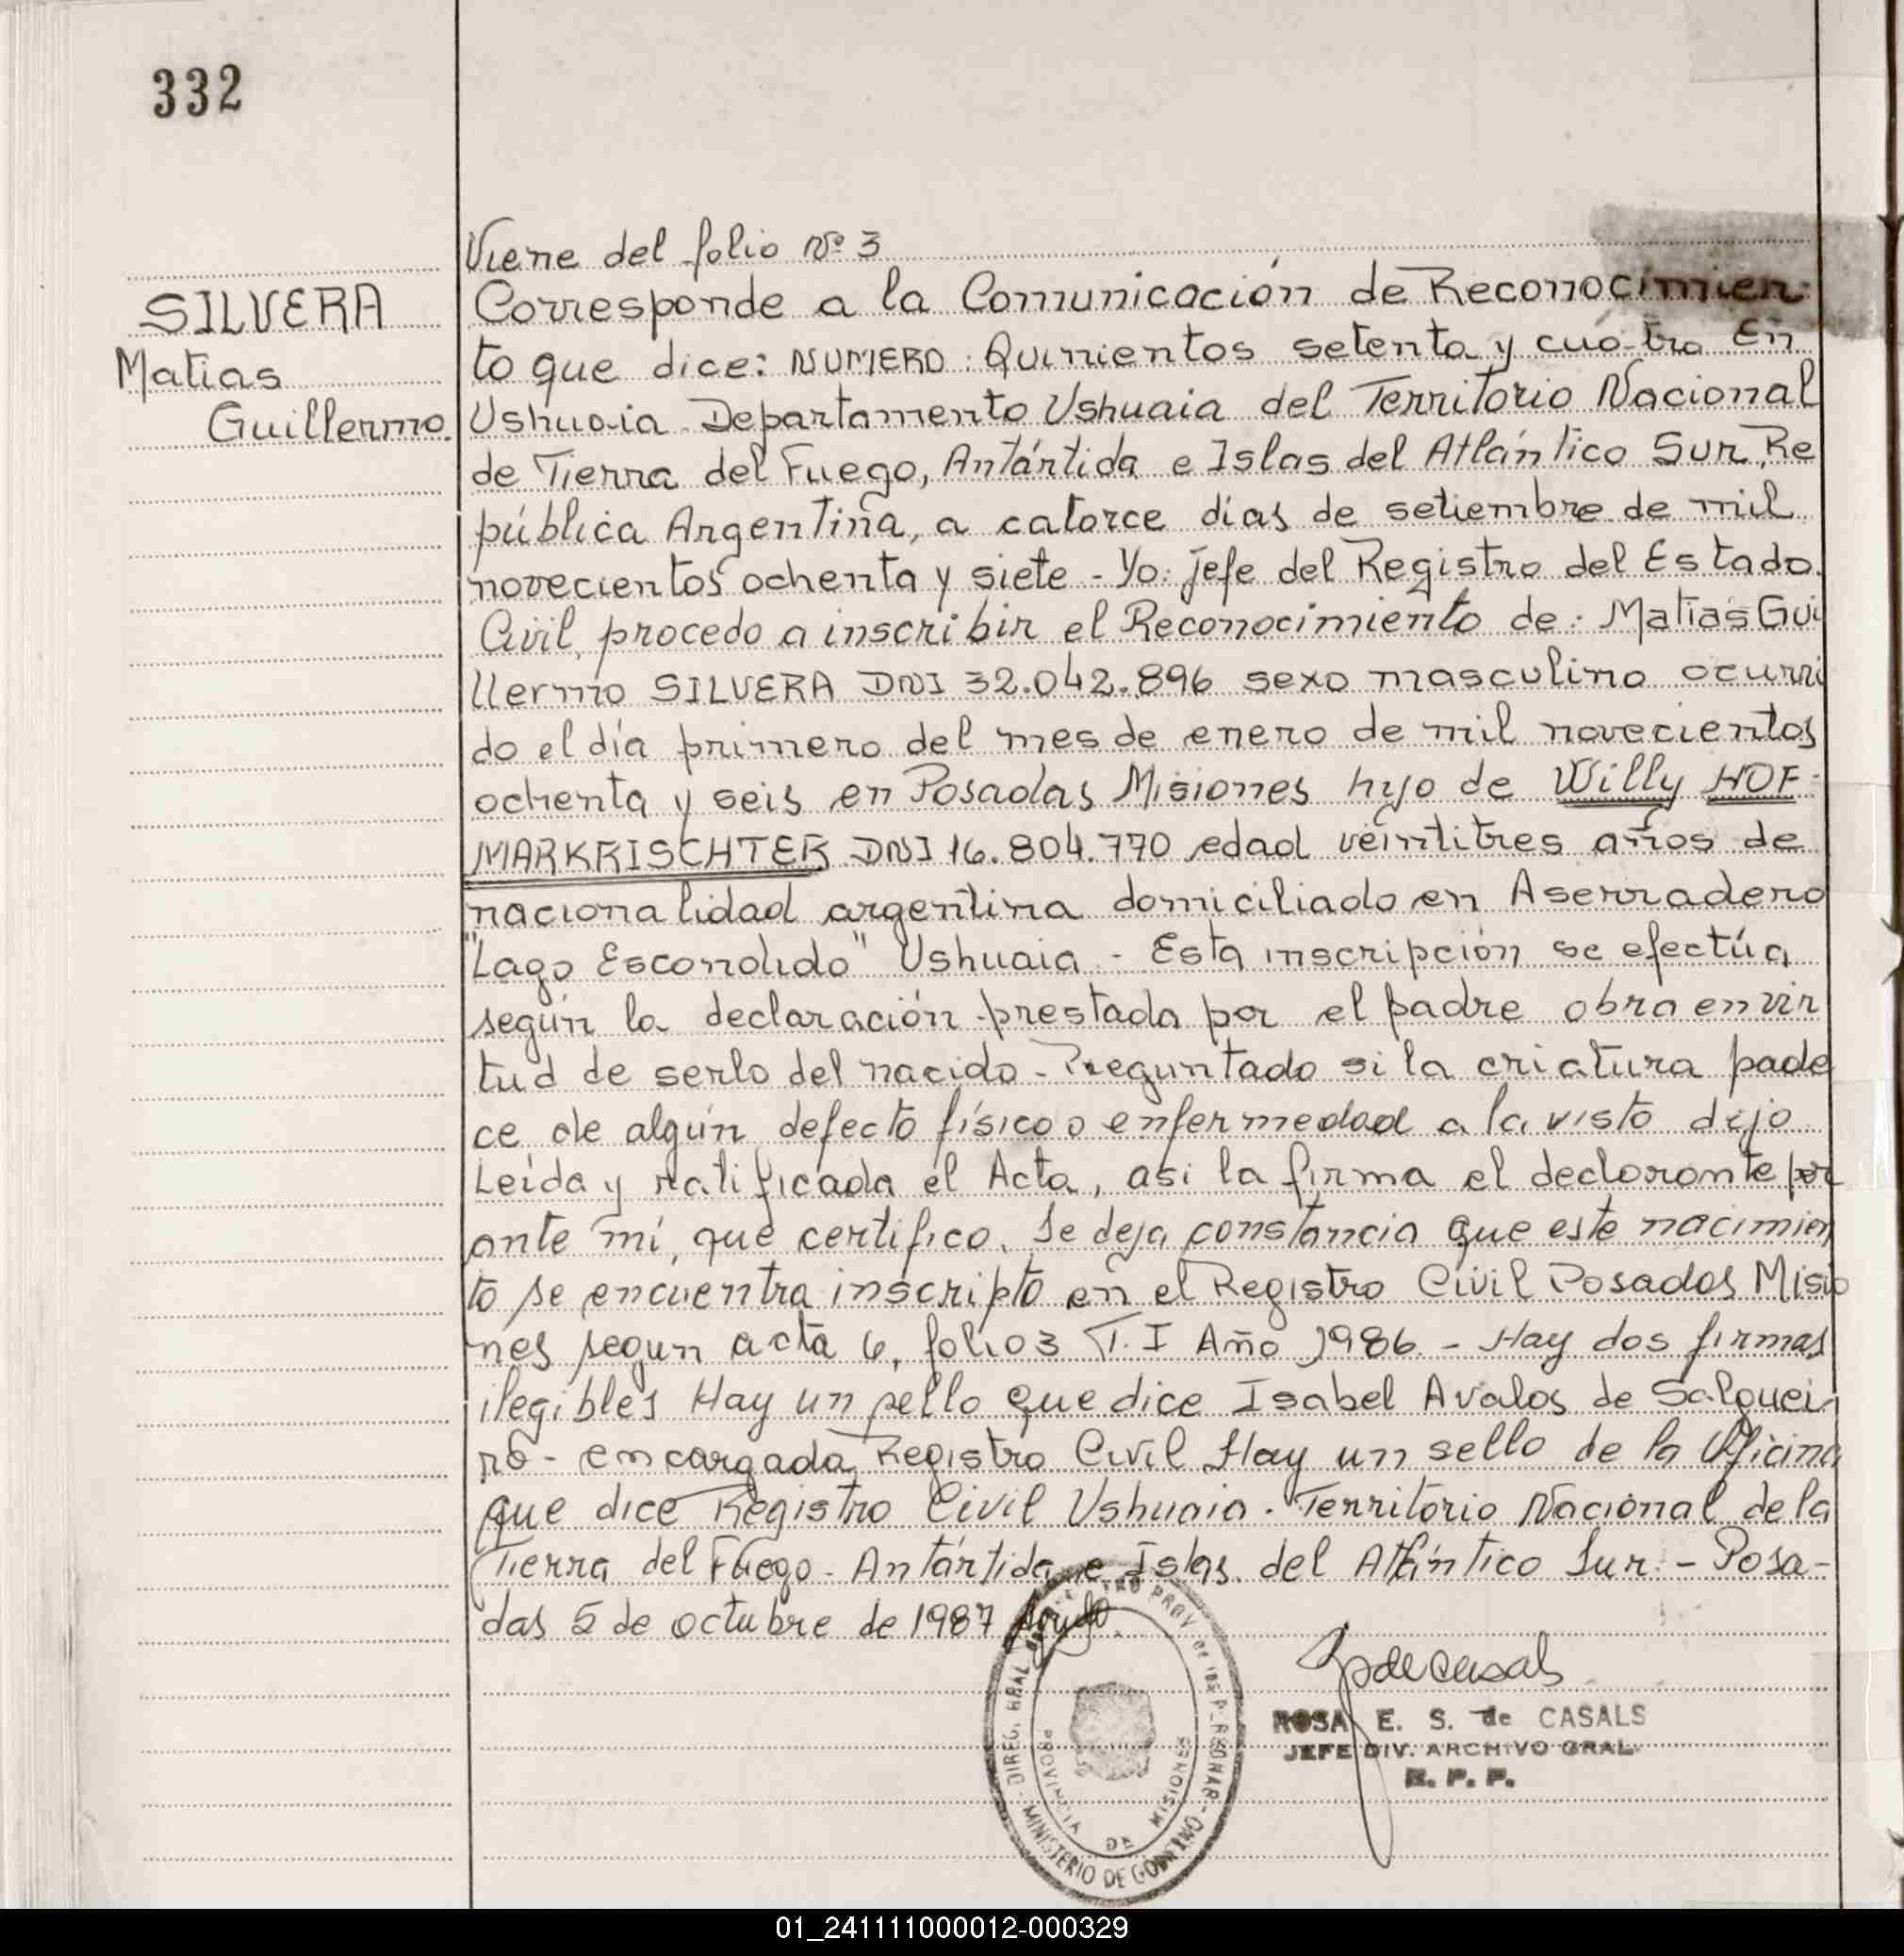 332
Viene del folio Nº 3
SILVERA
Matias
Guillermo.
Corresponde a la Comunicación de Reconocimien-
to que dice: NUMERO: Quinientos setenta y cuatro En
Ushuaia Departamento Ushuaia del Territorio Nacional
de Tierra del Fuego, Antártida e Islas del Atlántico Sur, Re
pública Argentina, a catorce días de setiembre de mil
novecientos ochenta y siete - Yo: Jefe del Registro del Estado
Civil, procedo a inscribir el Reconocimiento de: Matias Gui
llermo SILVERA DNI 32.042.896 sexo masculino ocurri
do el día primero del mes de enero de mil novecientos
ochenta y seis en Posadas Misiones hijo de Willy HOF-
MARKRISCHTER DNI 16.804.770 edad veintitres años de
nacionalidad argentina domiciliado en Aserradero
"Lago Escondido" Ushuaia - Esta inscripción se efectúa
según la declaración prestada por el padre obra en vir
tud de serlo del nacido - Preguntado si la criatura pade
ce de algún defecto físico o enfermedad a la vista dijo
Leída y ratificada el Acta, asi la firma el declarante por
ante mí, que certifico. Se deja constancia que este nacimien
to se encuentra inscripto en el Registro Civil Posadas Misio
nes segun acta 6, folio 3 T. I Año 1986 - Hay dos firmas
ilegibles Hay un sello que dice Isabel Avalos de Salguei
ro - encargada Registro Civil Hay un sello de la Oficina
que dice Registro Civil Ushuaia - Territorio Nacional de la
Tierra del Fuego - Antártida e Islas del Atlántico Sur - Posa-
das 5 de octubre de 1987
DIREG. GRAL PROV de
MINISTERIO DE GOBIERNO
PROVINCIA DE MISIONES
ROSA E. S. de CASALS
JEFE DIV. ARCHIVO GRAL.
R. P. P.
01_241111000012-000329